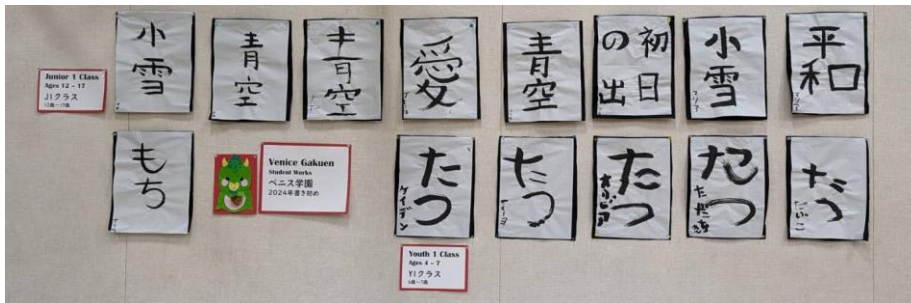 小雪
青空
青空
愛
青空
初日
の出
小雪
マリア
平和
マリア
Junior 1 Class
Ages 12 - 17
J1クラス
12歳~17歳
もち
Venice Gakuen
Student Works
ベニス学園
2024年書き初め
たつ
ケイデン
たつ
たつ
オリビア
たつ
ただち
たつ
だいこ
Youth 1 Class
Ages 4 - 7
Y1クラス
4歳~7歳